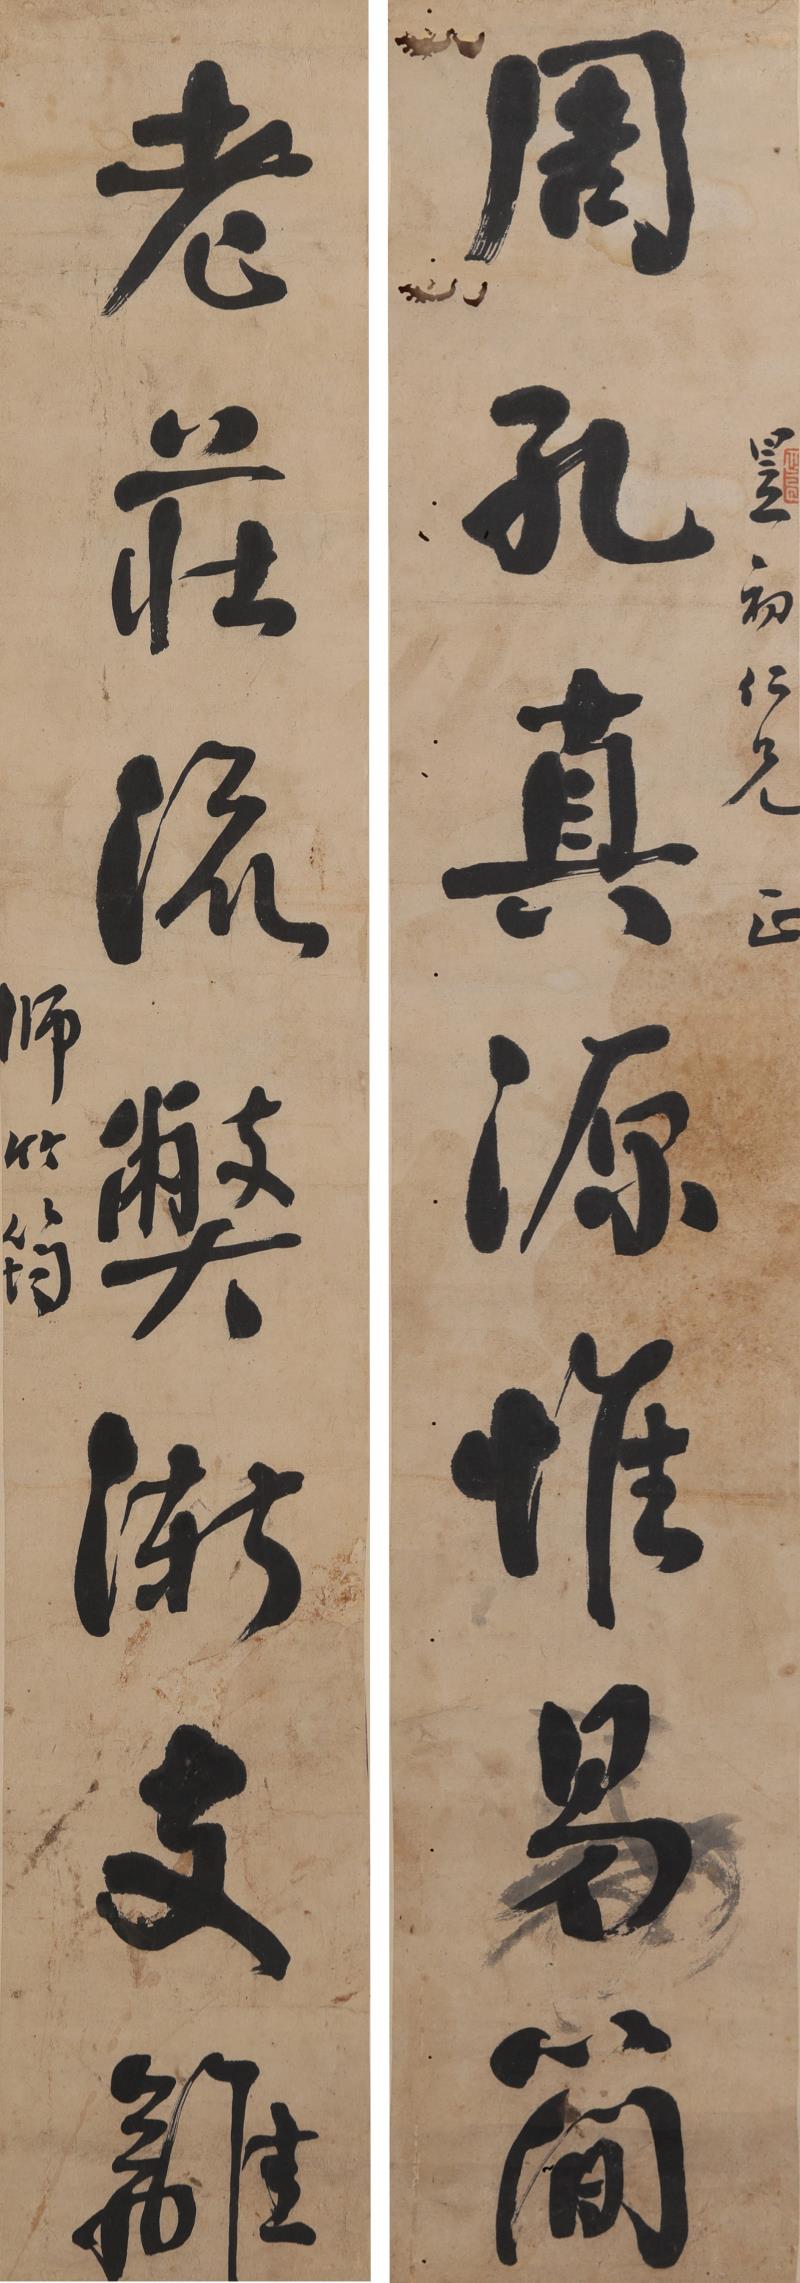 周孔真源惟易簡
初仁兄 正
老莊流弊漸支離
師竹筠